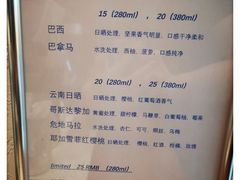 15 (280ml) , 20 (380ml)
巴西 日晒处理, 坚果香气明显, 口感干净柔和
巴拿马 水洗处理, 西柚, 菠萝, 口感纯净
20 (280ml) , 25 (380ml)
云南日晒 日晒处理, 樱桃, 红葡萄酒香气
哥斯达黎加 黄蜜处理, 甜柠檬, 马鞭草, 白葡萄, 椰果
危地马拉 水洗处理, 杏仁, 可可, 烟丝, 乌梅
耶加雪菲红樱桃 日晒处理, 红酒, 柑橘, 玫瑰
limited 25 RMB (280ml)